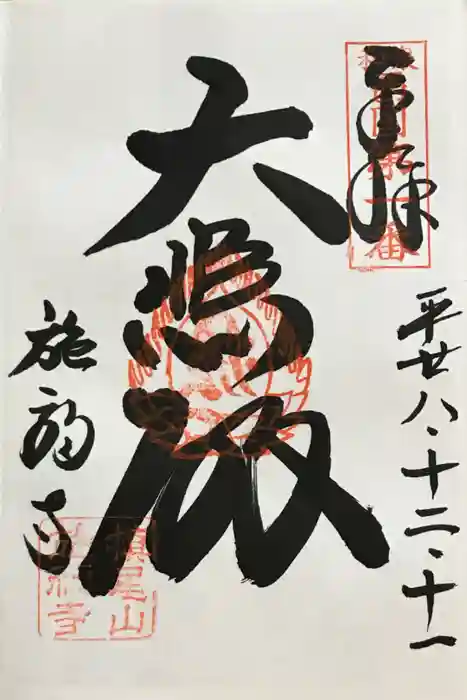 奉拝
西国第一番
平廿八、十二、十一
大悲殿
施福寺
槇尾山
施福寺